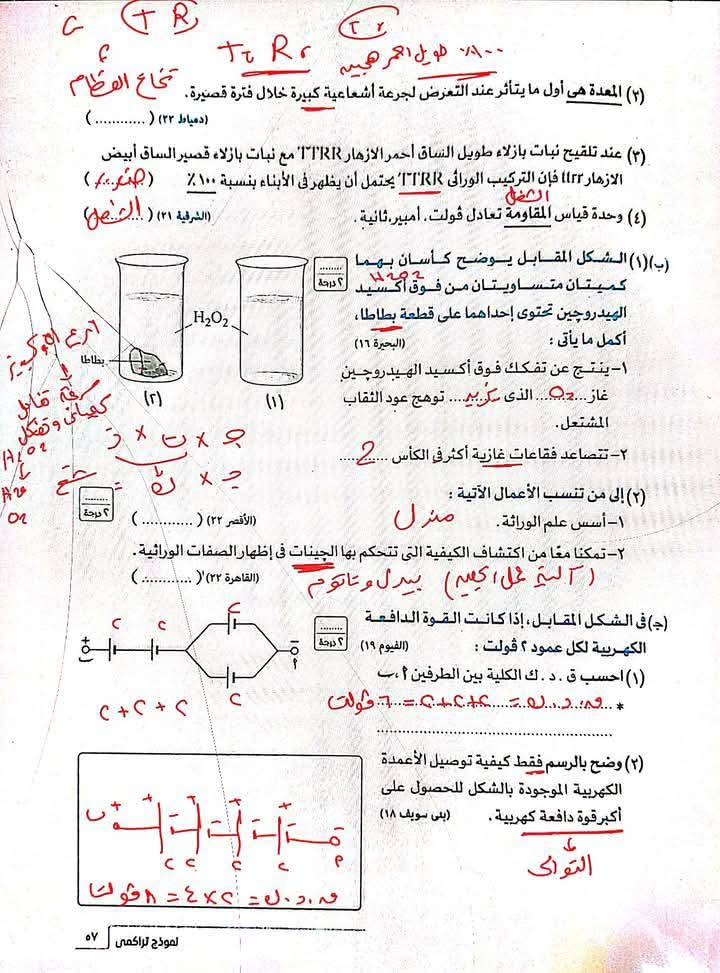 T R
T r
Tt Rr
١٠٠٪ طويل احمر هجينه
نخاع العظام
(٢) المعدة هى أول ما يتأثر عند التعرض لجرعة أشعاعية كبيرة خلال فترة قصيرة.
(دمياط ٢٢) (............)
(٣) عند تلقيح نبات بازلاء طويل الساق أحمر الازهار TTRR مع نبات بازلاء قصير الساق أبيض
الازهار ttrr فإن التركيب الوراثى TTRR يحتمل أن يظهر فى الأبناء بنسبة ١٠٠٪ (صفر٪)
الشغل
(٤) وحدة قياس المقاومة تعادل ڤولت. أمبير.ثانية. (الشرقية ٢١) (الشغل)
(ب)(١) الشكل المقابل يوضح كأسان بهما
٢ درجة
H2O2
كميتان متساويتان من فوق أكسيد
الهيدروچين تحتوى إحداهما على قطعة بطاطا،
أكمل ما يأتى : (البحيرة ١٦)
H₂O₂
بطاطا
(٢) (١)
١- ينتج عن تفكك فوق أكسيد الهيدروچين
غاز...O2... الذى يزيد... توهج عود الثقاب
المشتعل.
٢- تتصاعد فقاعات غازية أكثر فى الكأس ...2...
H2O2
H2O
O2
جـ × ت × ز
جـ × ك = شغ
(٢) إلى من تنسب الأعمال الآتية :
٢ درجة
١- أسس علم الوراثة. مندل (الأقصر ٢٢) (............)
٢- تمكنا معًا من اكتشاف الكيفية التى تتحكم بها الچينات فى إظهار الصفات الوراثية.
(القاهرة ٢٢) (............)
(آلية عمل الجينه) بيدل وتاتوم
(جـ) فى الشكل المقابل، إذا كانت القوة الدافعة
٢ درجة
الكهربية لكل عمود ٢ ڤولت : (الفيوم ١٩)
(١) احسب ق. د. ك الكلية بين الطرفين ا، ب
* ق.د.ك = ٢+٢+٢ = ٦ ڤولت
٢ + ٢ + ٢
(٢) وضح بالرسم فقط كيفية توصيل الأعمدة
الكهربية الموجودة بالشكل للحصول على
أكبر قوة دافعة كهربية. (بنى سويف ١٨)
التوالى
ب + + + + + ا
٢ ٢ ٢ ٢
ق.د.ك = ٢×٤ = ٨ ڤولت
نموذج تراكمى ٥٧